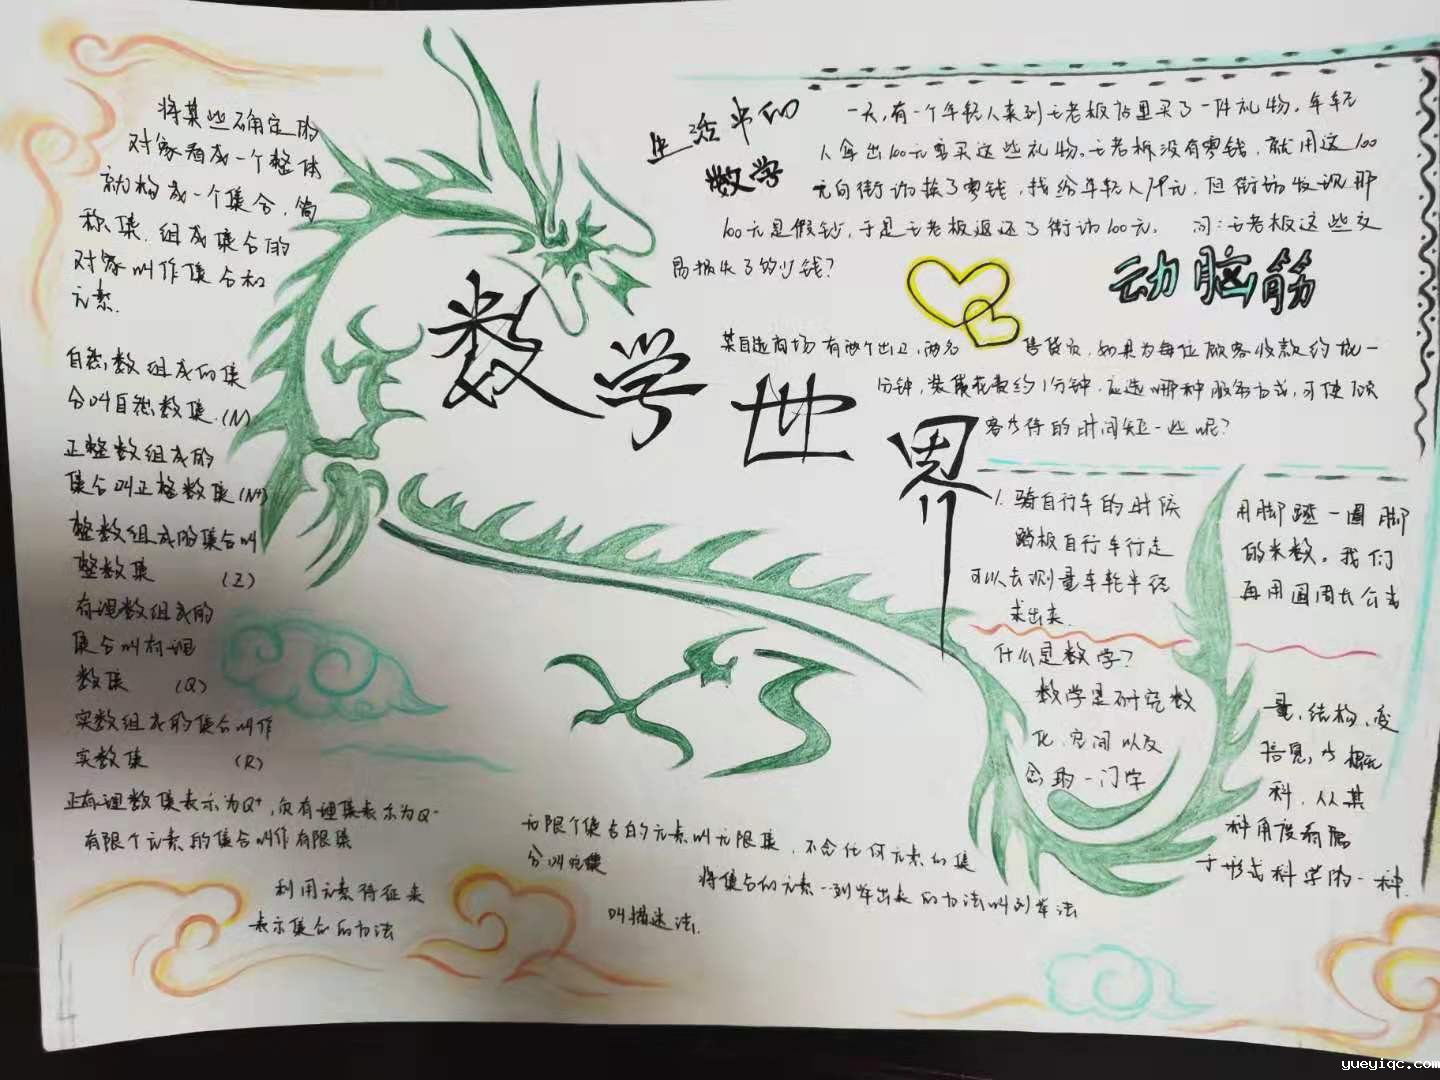 数学世界
将某些确定的
对象看成一个整体
就构成一个集合,简
称集.组成集合的
对象叫作集合和
元素.
自然数组成的集
合叫自然数集(N)
正整数组成的
集合叫正整数集(N+)
整数组成的集合叫
整数集 (Z)
有理数组成的
集合叫有理
数集 (Q)
实数组成的集合叫作
实数集 (R)
正有理数集表示为Q+,负有理集表示为Q-
有限个元素的集合叫作有限集
利用元素特征来
表示集合的方法
无限个集合的元素叫无限集,不含任何元素的集
合叫空集
将集合的元素一列举出来的方法叫列举法
叫描述法.
生活中的
数学
一天,有一个年轻人来到王老板店里买了一件礼物,年轻
人拿出100元要买这些礼物。王老板没有零钱,就用这100
元向街访换了零钱,找给年轻人79元,但街访发现那
100元是假钞,于是王老板返还了街访100元. 问:王老板这些交
易损失了多少钱?
动脑筋
某自选商场有两个出口,两名 售货员,如果为每位顾客收款约成一
1分钟,装袋花费约1分钟,应选哪种服务方式,可使顾
客等待的时间短一些呢?
1.骑自行车的时候 用脚踏一圈脚
踏板自行车行走 的米数。我们
可以去测量车轮半径 再用圆周长公式
求出来.
什么是数学?
数学是研究数 量,结构,变
化,空间以及 信息,等概
念的一门学 科,从某
种角度看属
于形式科学的一种.
yueyiqc.com